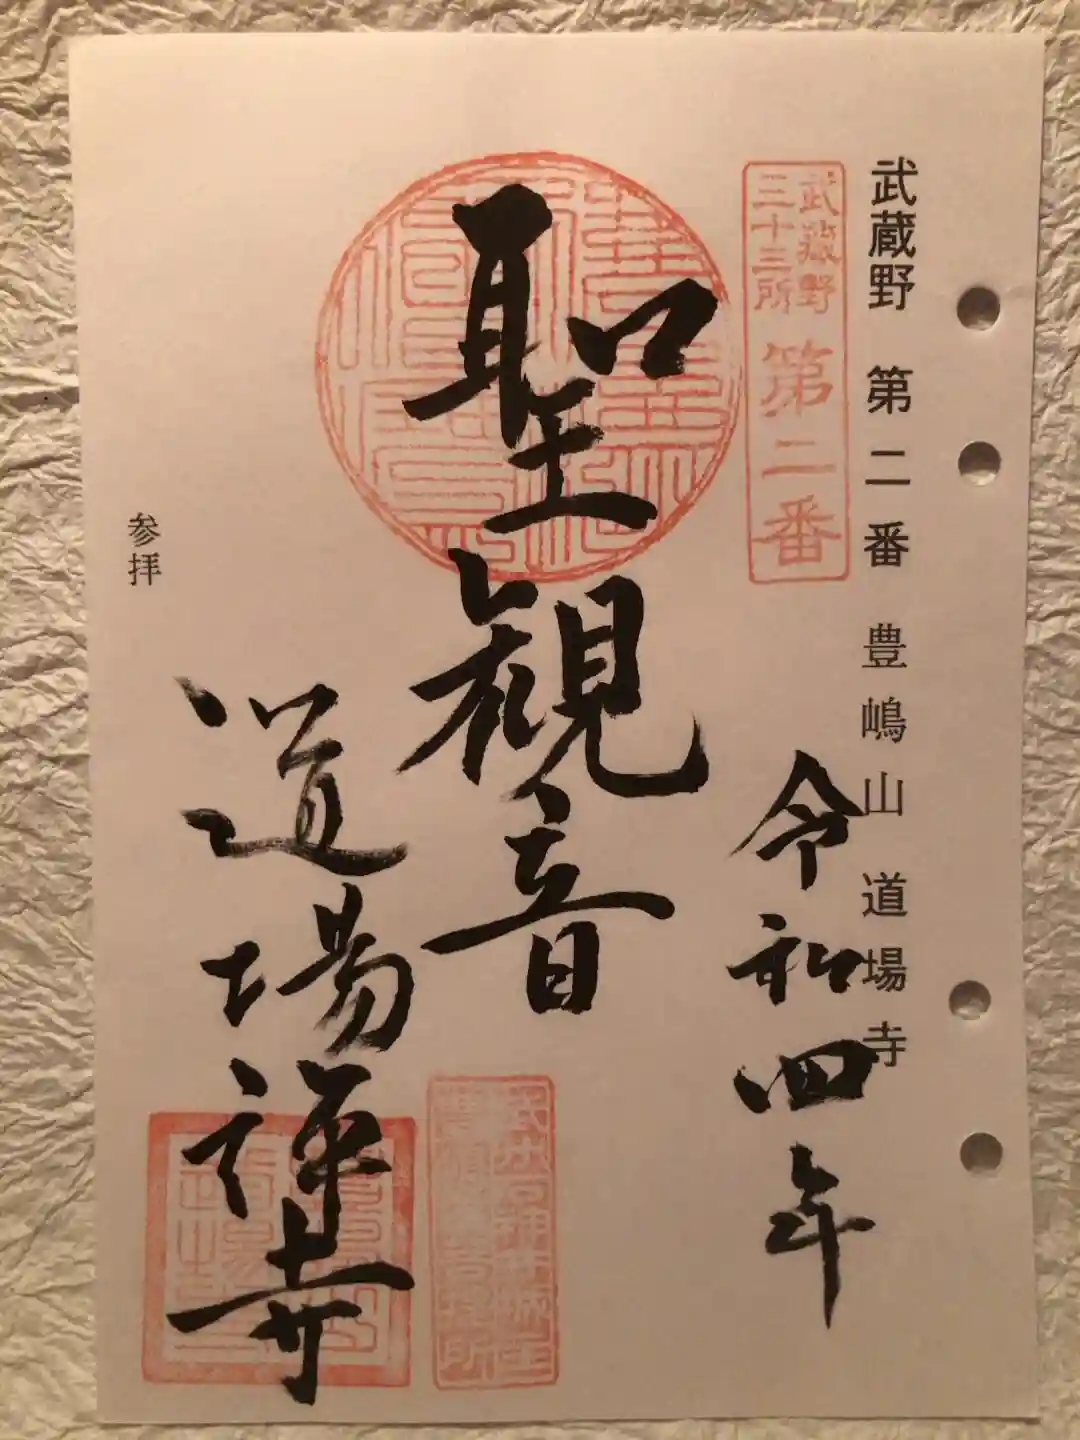 武蔵野 第二番 豊嶋山 道場寺
武蔵野
三十三所
第二番
令和四年
聖観音
道場禅寺
参拝